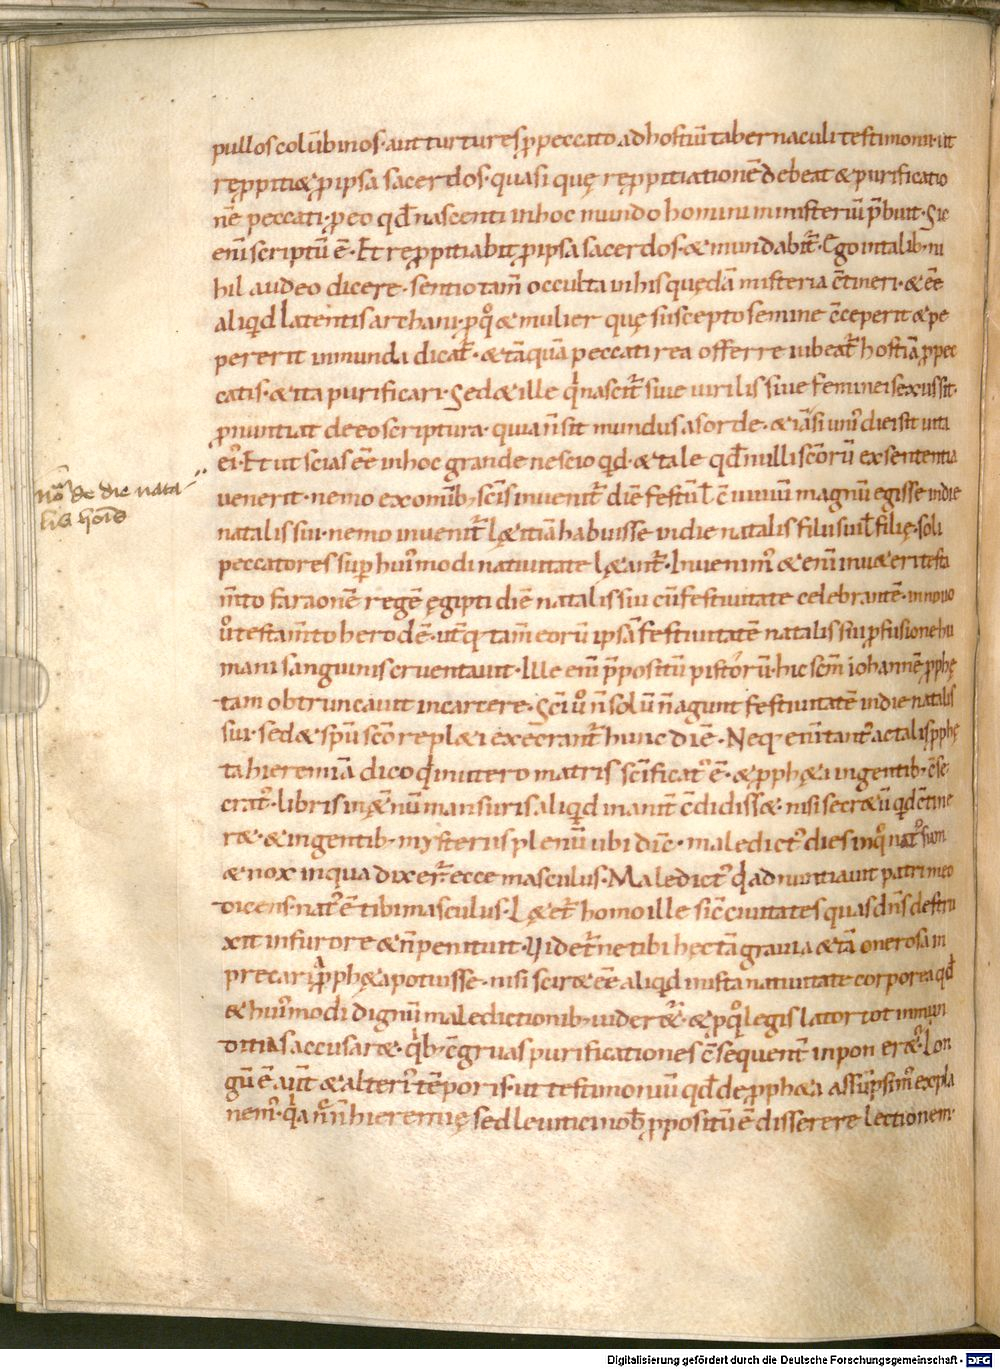 pullos colūbinos· aut turtures ꝓ peccato ad hostiū tabernaculi testimonii· ut
reꝓpitiet ꝓ ipsa sacerdos· quasi quę reꝓpitiationē debeat & purificatio
nē peccati· ꝓ eo qđ nascenti in hoc mundo homini ministeriū p̄buit· Sic
eni scriptū ē· Et reꝓpitiabit ꝓ ipsa sacerdos· & mundabit᷑· Ego in talib· ni
hil audeo dicere· sentio tam̄ occulta in his quędā misteria c̄tineri· & eē
aliqid latentis archani· ꝓ qͦ & mulier quę suscepto semine c̄ceperit & pe
pererit inmunda dicat᷑· & tāquā peccati rea offerre iubeat᷑ hostiā ꝓ pec
catis· & ita purificari· Sed & ille qͥ nascit᷑ siue virilis siue feminei sexus sit·
ꝓnuntiat de eo scriptura· quia n̄ sit mundus a sorde· & iāsi uniꝰ diei sit uita
eiꝰ· Et ut scias eē in hoc grande nescio qid· & tale qđ nulli sc̄orū ex sententia
uenerit· nemo ex omīb· sc̄is inuenit᷑ diē festū ł c̄uiuiū magnū egisse in die
natalis sui· nemo inuenit᷑ lętitiā habuisse in die natalis filii sui ł filię· soli
peccatores sup huiꝰmodi natiuitate lętant᷑· Inuenimꝰ & enī in uęteri testa
m̄to faraonē regē ęgipti diē natalis sui cū festiuitate celebrantē· in nouo
ů testam̄to herodē· utq tam̄ eorū ipsā festiuitatē natalis sui ꝓfusione hu
mani sanguinis cruentauit· Ille enī p̄positū pistorū· hic sc̄m iohannē ꝓphę
tam obtruncauit in carcere· Sc̄i ů n̄ solū n̄ agunt festiuitatē in die natalis
sui· sed & spū sc̄o repleti execrant᷑ hunc diē· Neq enī tantꝰ ac talis ꝓphę
ta hieremiā dico qͥ in utero matris sc̄ificatꝰ ē· & ꝓph&a in gentib· c̄se
cratꝰ· libris in &nū mansuris aliqid inanit c̄didiss&· nisi secr&ū qid c̄tine
r&· & ingentib· mysteriis plenū ubi dic̄· maledictꝰ dies in qͦ natꝰ sum
& nox in qua dixer᷑ ecce masculus· Maledictꝰ qͥ adnuntiauit patri meo
dicens· natꝰ ē tibi masculus· Lętet᷑ homo ille sic̄ ciuitates quas dn̄s destru
xit in furore & n̄ penituit· Videt᷑ ne tibi hęc tā grauia & tā onerosa in
precari ꝓph&a potuisse· nisi scir& eē aliqid in ista natiuitate corporea qđ
& huiꝰmodi dignū maledictionib· uider&᷑· & ꝓ qͦ legislator tot inmun
ditias accusar&· qͥb· c̄gruas purificationes c̄sequent᷑ inponer&᷑· Lon
gū ē aut̄ & alteriꝰ tēporis· ut testimoniū qđ de ꝓph&a assūpsimꝰ expla
nemꝰ· qͥa n̄c n̄ hieremię sed leuitici nob ꝓpositū ē disserere lectionem·
no de die nata
lis hōis
Digitalisierung gefördert durch die Deutsche Forschungsgemeinschaft - DFG